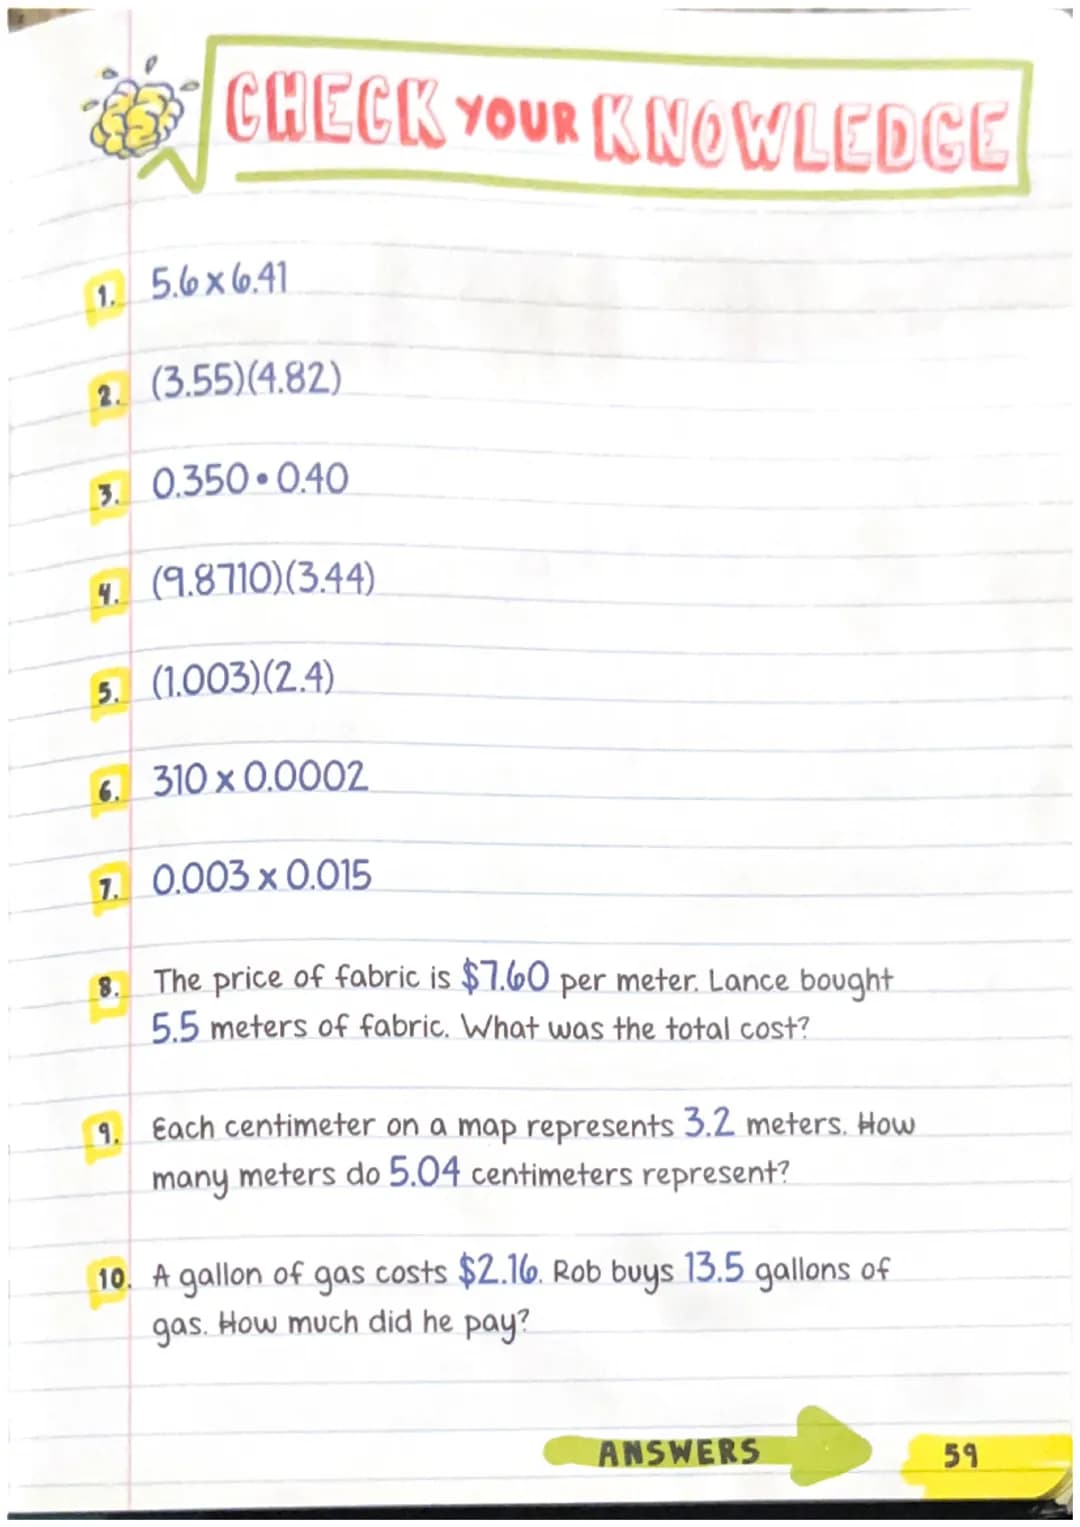 CHECK YOUR KNOWLEDGE
1. 5.6 x 6.41
2. (3.55)(4.82)
3. 0.350 • 0.40
4. (9.8710)(3.44)
5. (1.003)(2.4)
6. 310 x 0.0002
7. 0.003 x 0.015
8. The price of fabric is $7.60 per meter. Lance bought
5.5 meters of fabric. What was the total cost?
9. Each centimeter on a map represents 3.2 meters. How
many meters do 5.04 centimeters represent?
10. A gallon of gas costs $2.16. Rob buys 13.5 gallons of
gas. How much did he pay?
ANSWERS
59